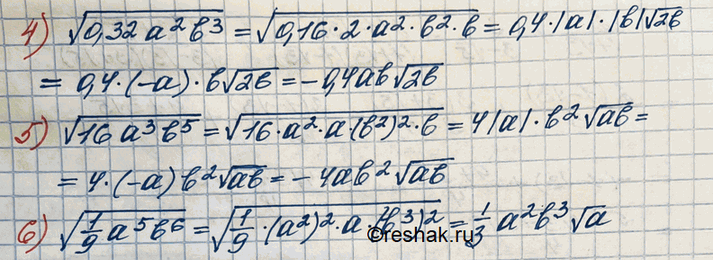 4) √(0,32 a²b³) = √(0,16·2·a²·b²·b) = 0,4·|a|·|b|√(2b)
= 0,4·(-a)·b√(2b) = -0,4ab√(2b)
5) √(16 a³b⁵) = √(16·a²·a·(b²)²·b) = 4|a|·b²√(ab) =
= 4·(-a) b²√(ab) = -4ab²√(ab)
6) √(1/9 a⁵b⁶) = √(1/9·(a²)²·a·(b³)²) = 1/3 a²b³√a
©reshak.ru